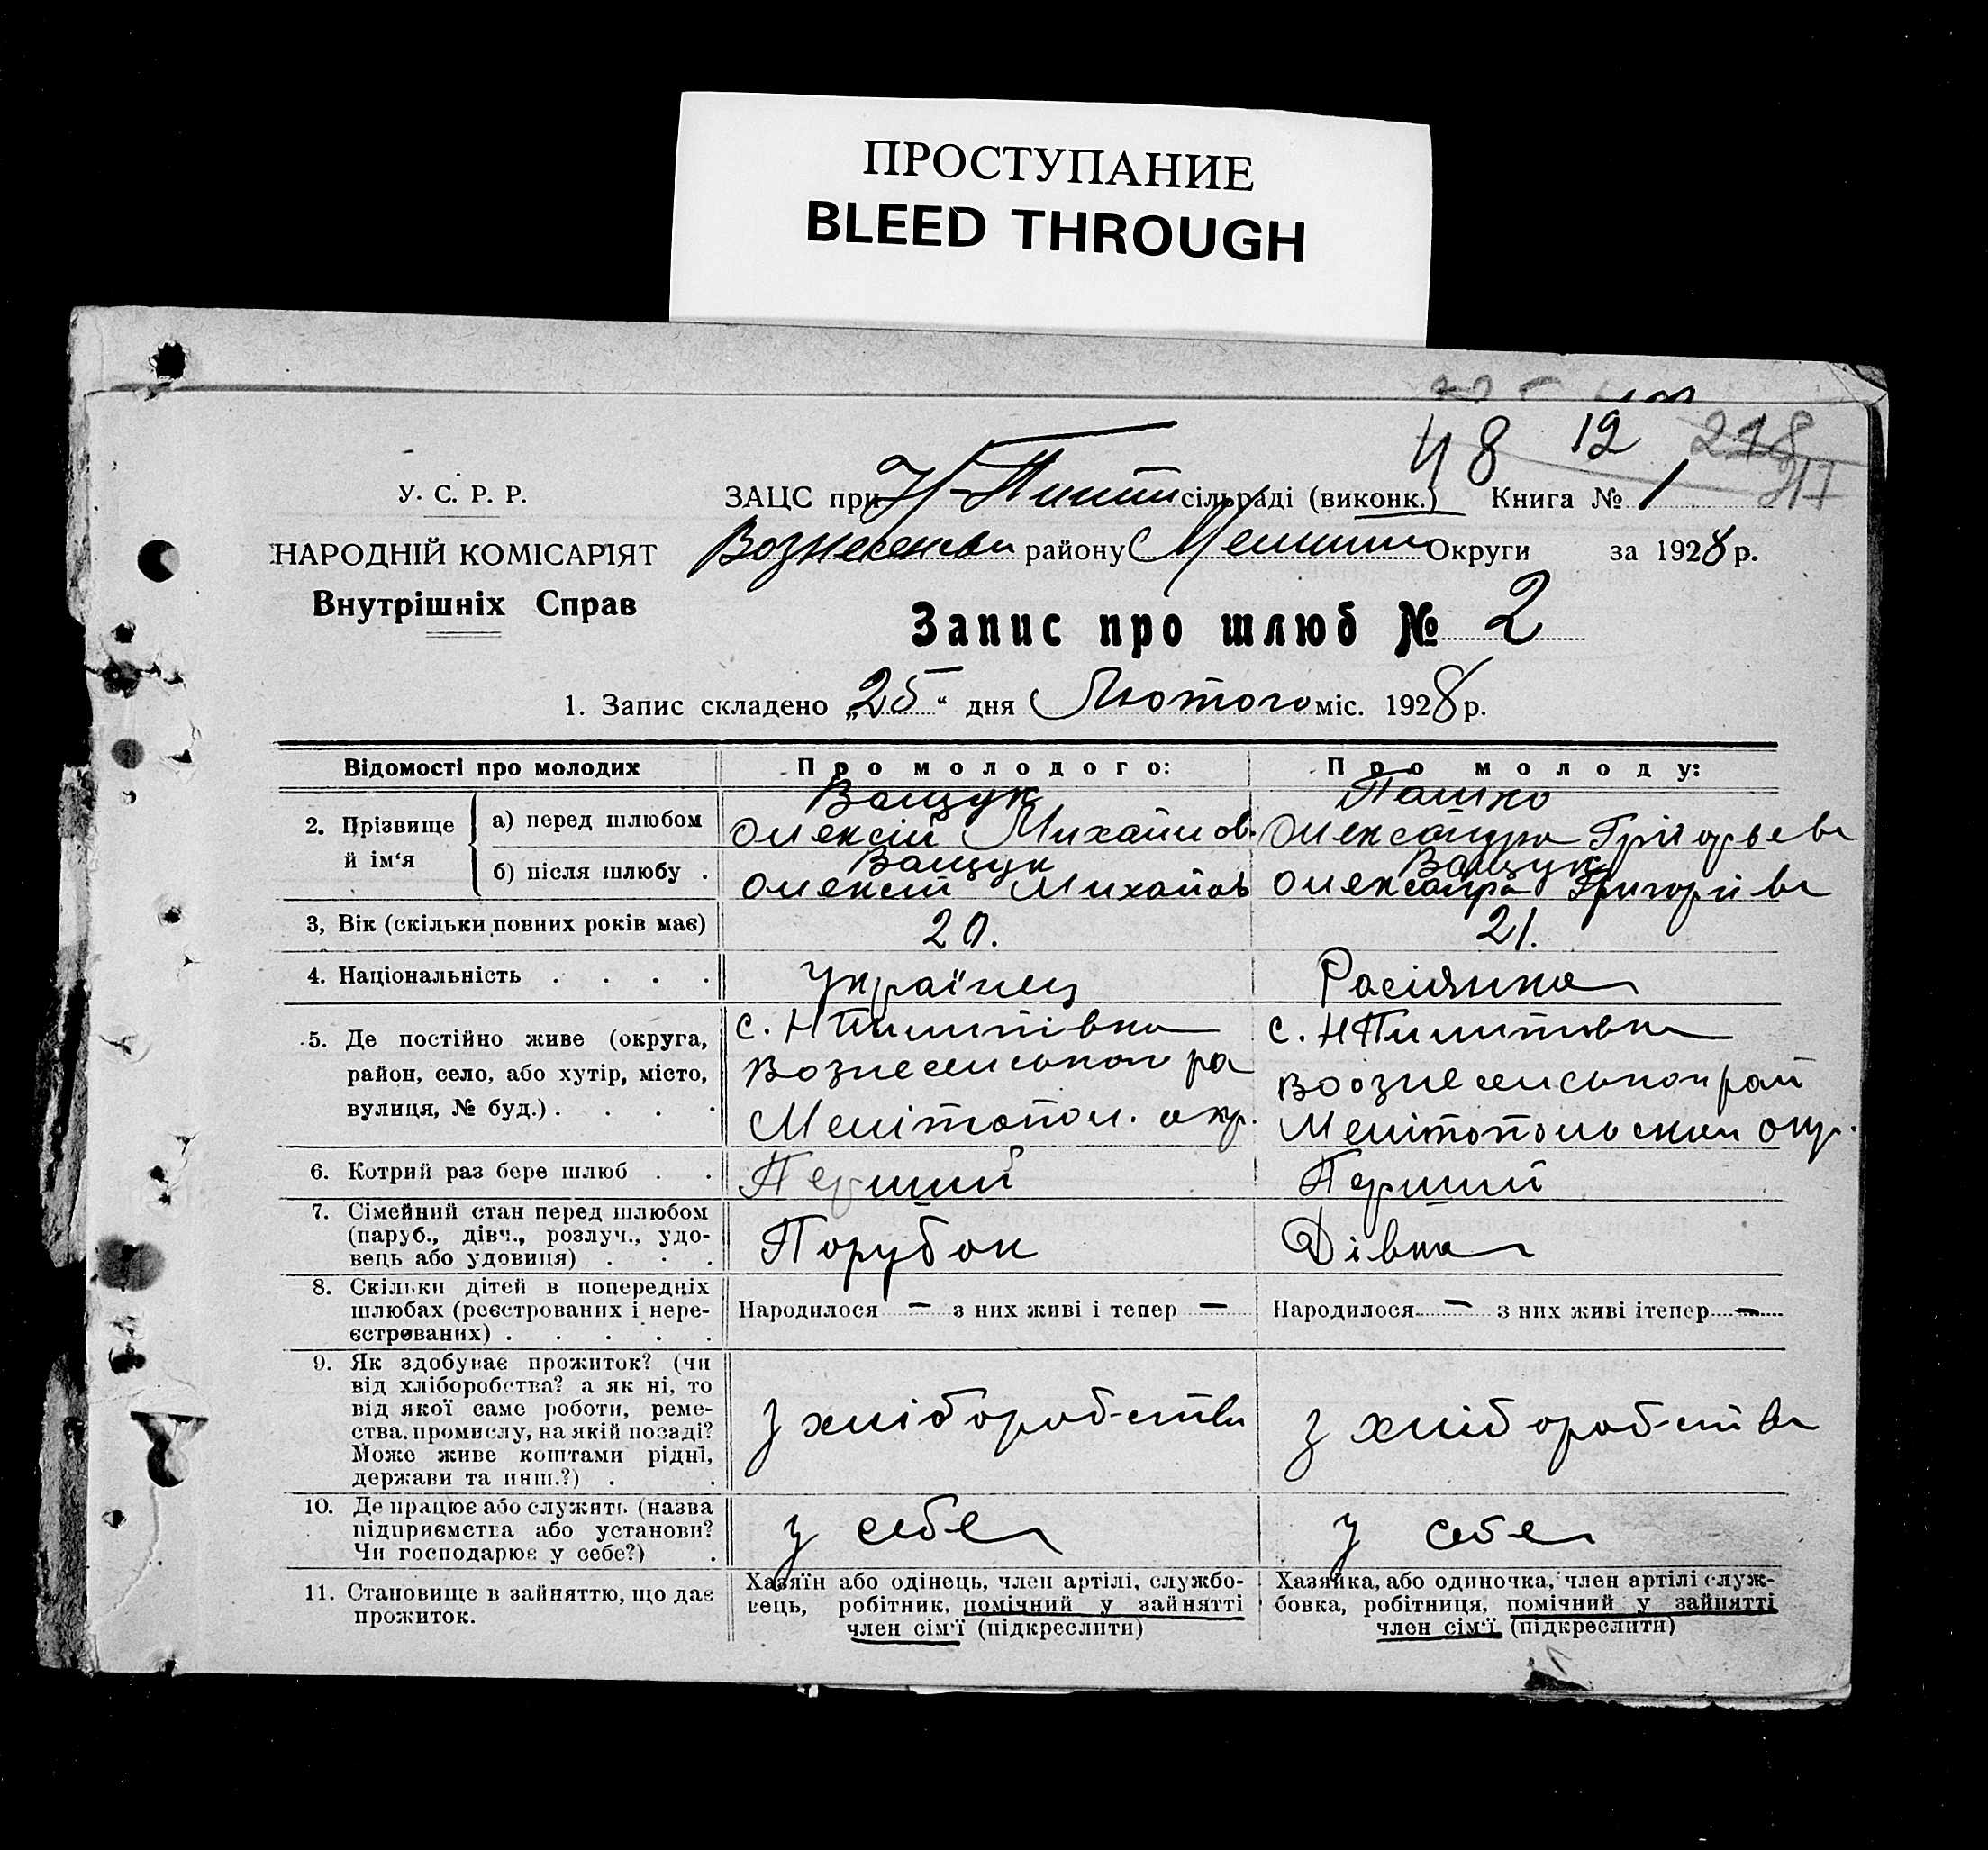 ПРОСТУПАНИЕ
BLEED THROUGH
48 12 218
217
У. С. Р. Р.
ЗАЦС при Н-Пилип сільраді (виконк.) Книга № 1
НАРОДНІЙ КОМІСАРІЯТ
Внутрішніх Справ
Вознесенськ району Округи за 1928 р.
Запис про шлюб № 2
1. Запис складено „25“ дня Лютого міс. 1928 р.
Відомості про молодих
Про молодого:
Про молоду:
2. Прізвище й ім‘я
а) перед шлюбом
Ващук
Олексій Михайлов.
Пашко
Олександра Григорьева
б) після шлюбу .
Ващук
Олексій Михайлов
Ващук
Олександра Григорівa
3, Вік (скільки повних років має)
20.
21.
4. Національність . . . .
Українец
Расіянка
5. Де постійно живе (округа,
район, село, або хутір, місто,
вулиця, № буд.) . . . .
с. НПилипівка
Вознесенськои ра
Мелітопол. окр.
с. НПилипівка
Воознесенськои рай
Мелітопольскои окр.
6. Котрий раз бере шлюб . .
Перший
Перший
7. Сімейний стан перед шлюбом
(паруб., дівч., розлуч., удо-
вець або удовиця) . . .
Порубок
Дівка
8. Скільки дітей в попередніх
шлюбах (реєстрованих і нере-
єстрованих) . . . . .
Народилося — з них живі і тепер —
Народилося — з них живі ітепер —
9. Як здобуває прожиток? (чи
від хліборобства? а як ні, то
від якої саме роботи, реме-
ства, промислу, на якій посаді?
Може живе коштами рідні,
держави та инш.?) . .
з хлібороб-ства
з хлібороб-ства
10. Де працює або служить (назва
підприємства або установи?
Чи господарює у себе?) .
у себе
у себе
11. Становище в зайняттю, що дає
прожиток.
Хазяїн або одінець, член артілі, службо-
вець, робітник, помічний у зайнятті
член сім‘ї (підкреслити)
Хазяйка, або одиночка, член артілі служ-
бовка, робітниця, помічний у зайнятті
член сім‘ї (підкреслити)